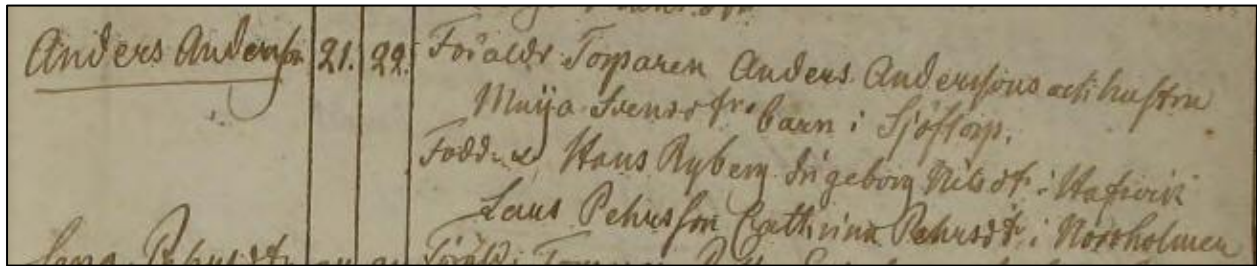 Anders Andersson 21. 22. Föräldr Torparen Anders Anderssons och hustru
Maija Svensdtr. barn i Sjöstorp.
Hans Ryberg Ingeborg Nilsdtr i
Lars Pehrsson Cathrina Pehrsdtr i Norrholmen
Pehrsdtr